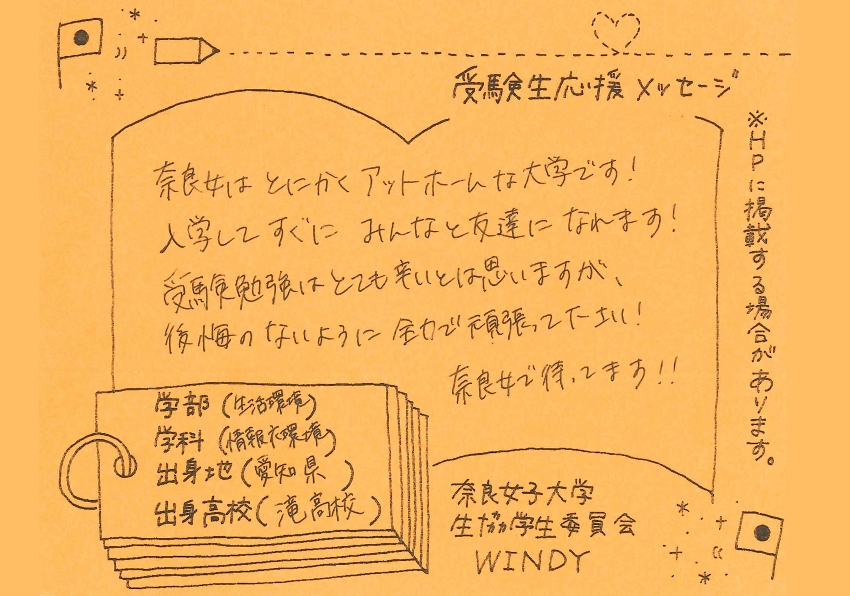 受験生応援メッセージ
※HPに掲載する場合があります。
奈良女は とにかく アットホームな大学です!
入学して すぐに みんなと友達に なれます!
受験勉強はとても辛いとは思いますが、
後悔のないように 全力で頑張って下さい!
奈良女で待ってます!!
学部(生活環境)
学科(情報衣環境)
出身地(愛知県)
出身高校(滝高校)
奈良女子大学
生協学生委員会
WINDY